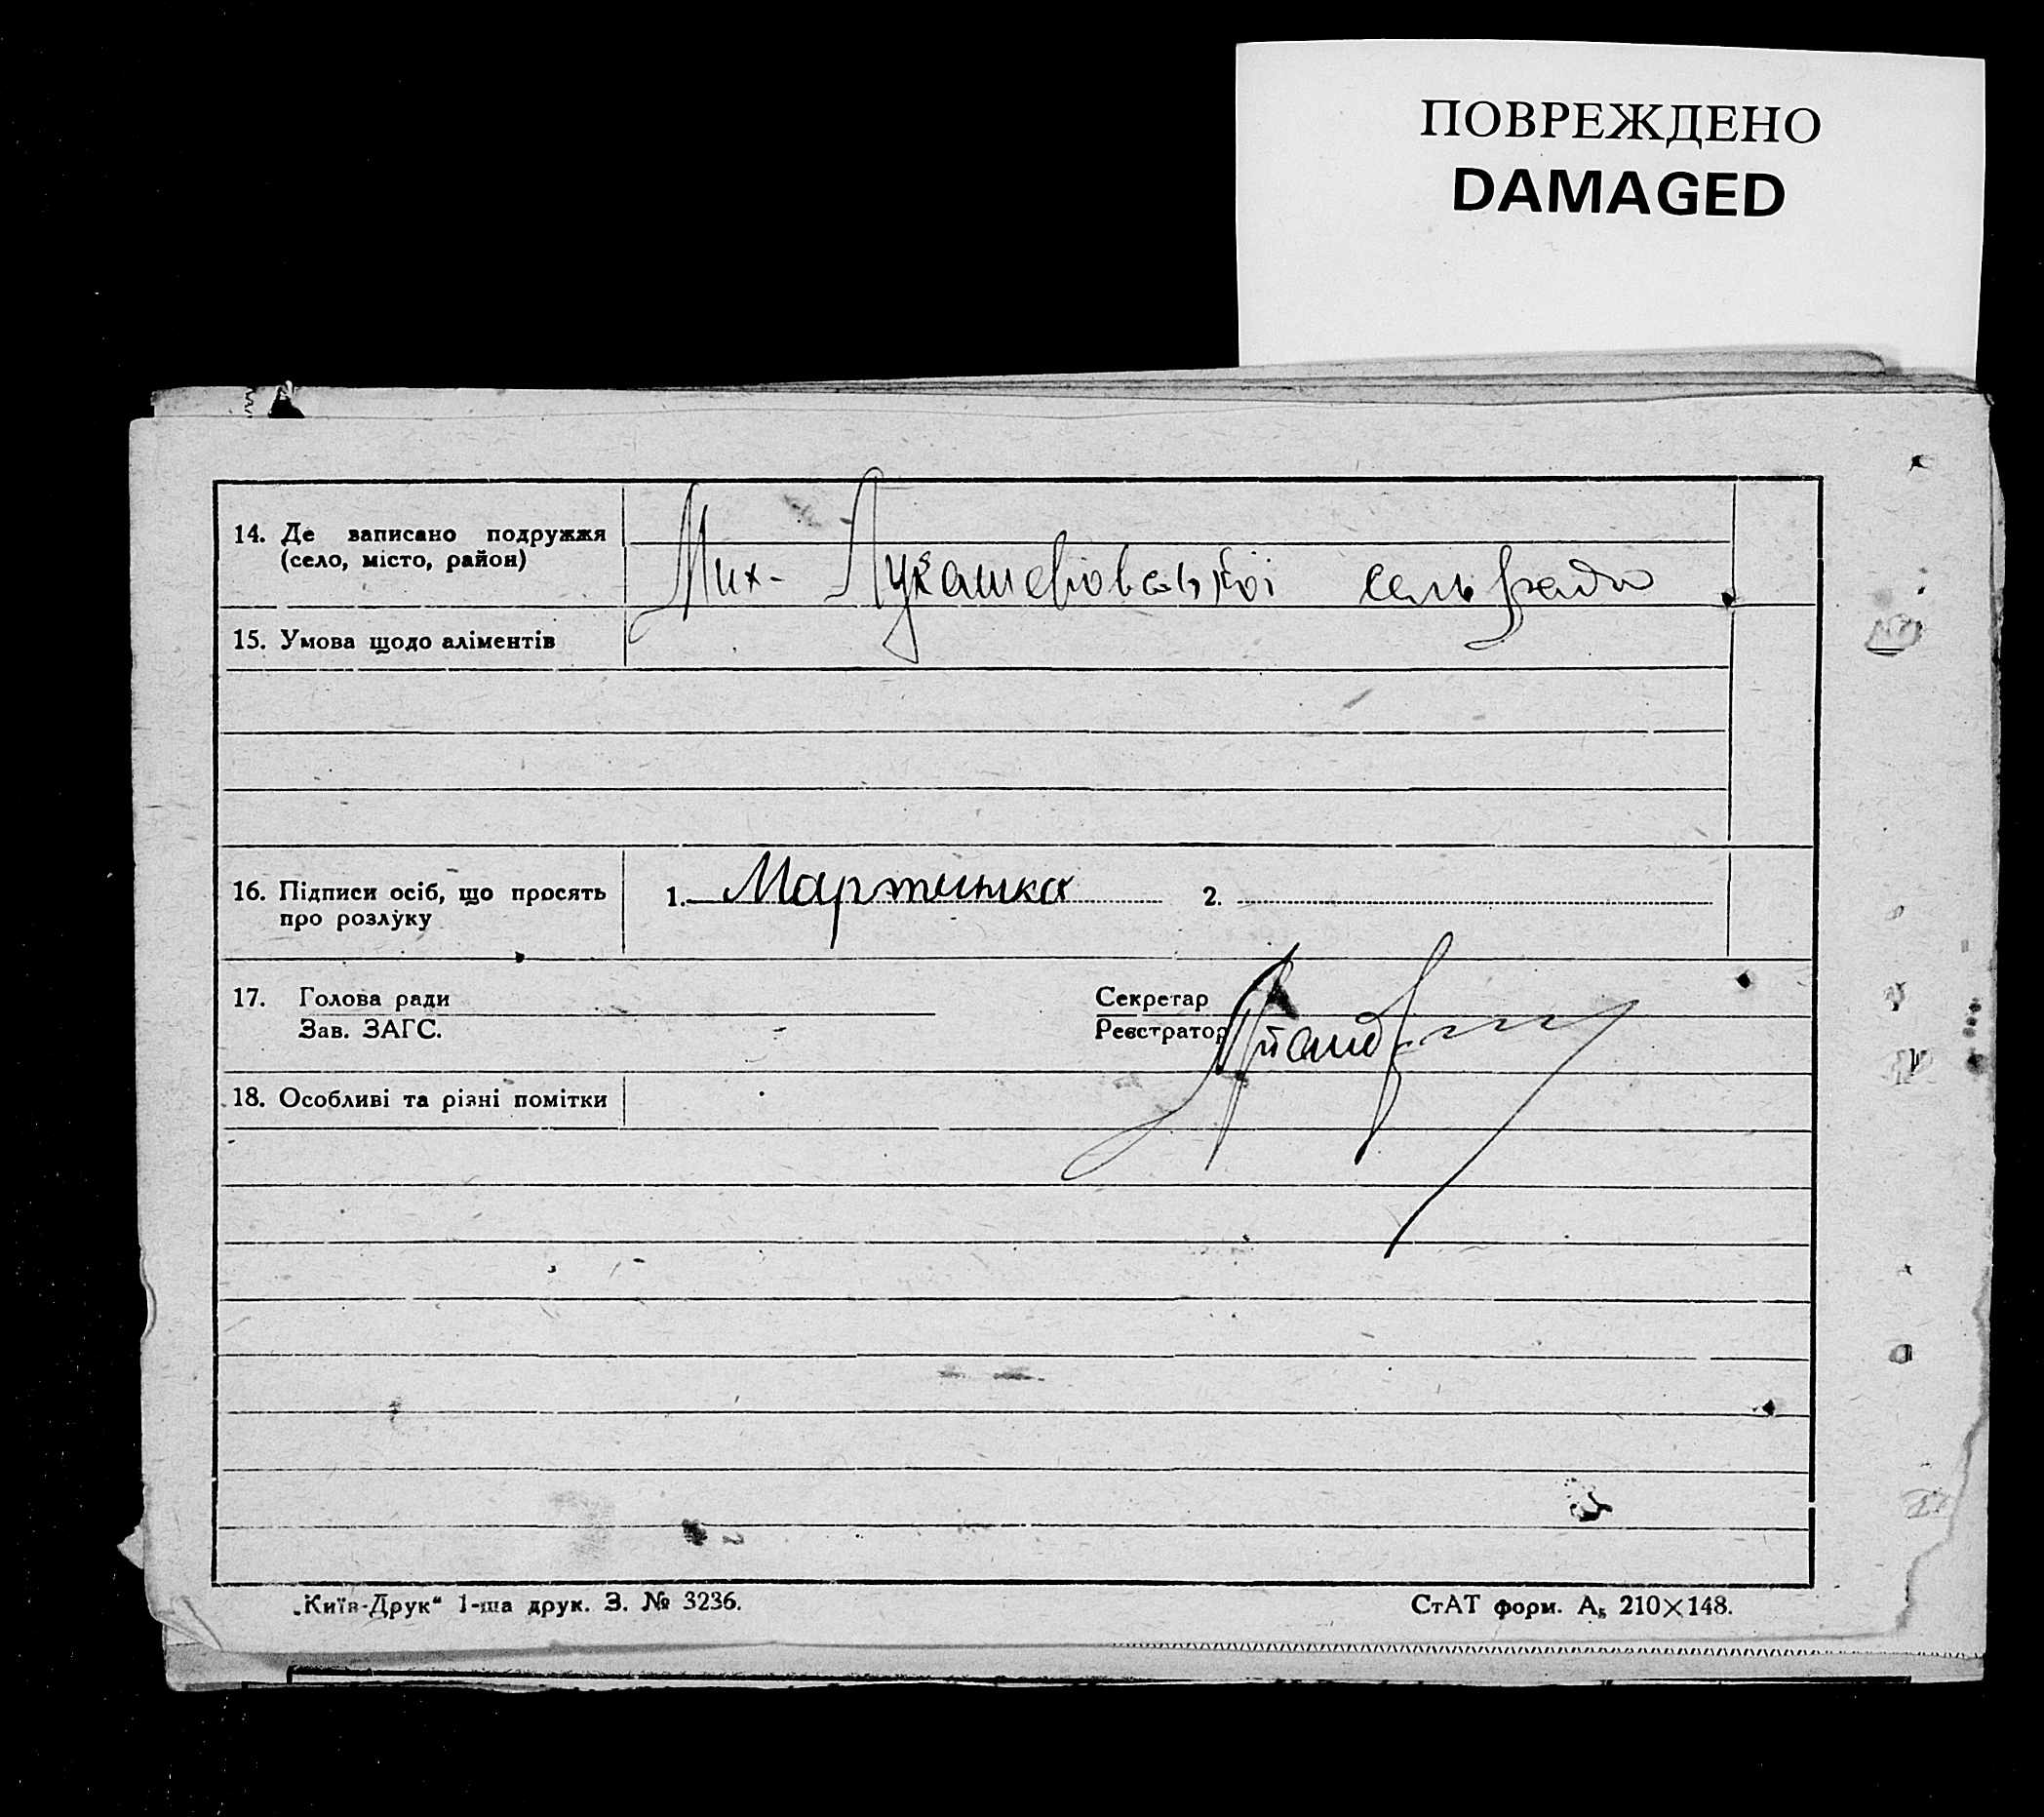 ПОВРЕЖДЕНО
DAMAGED
14. Де записано подружжя
(село, місто, район)
Мих- Лукашевовської сельради
15. Умова щодо аліментів
16. Підписи осіб, що просять
про розлуку
1. Мартинка 2.
17. Голова ради Секретар
Зав. ЗАГС. Реєстратор
18. Особливі та різні помітки
„Київ-Друк“ 1-ша друк. З. № 3236. СтАТ форм. А₅ 210×148.